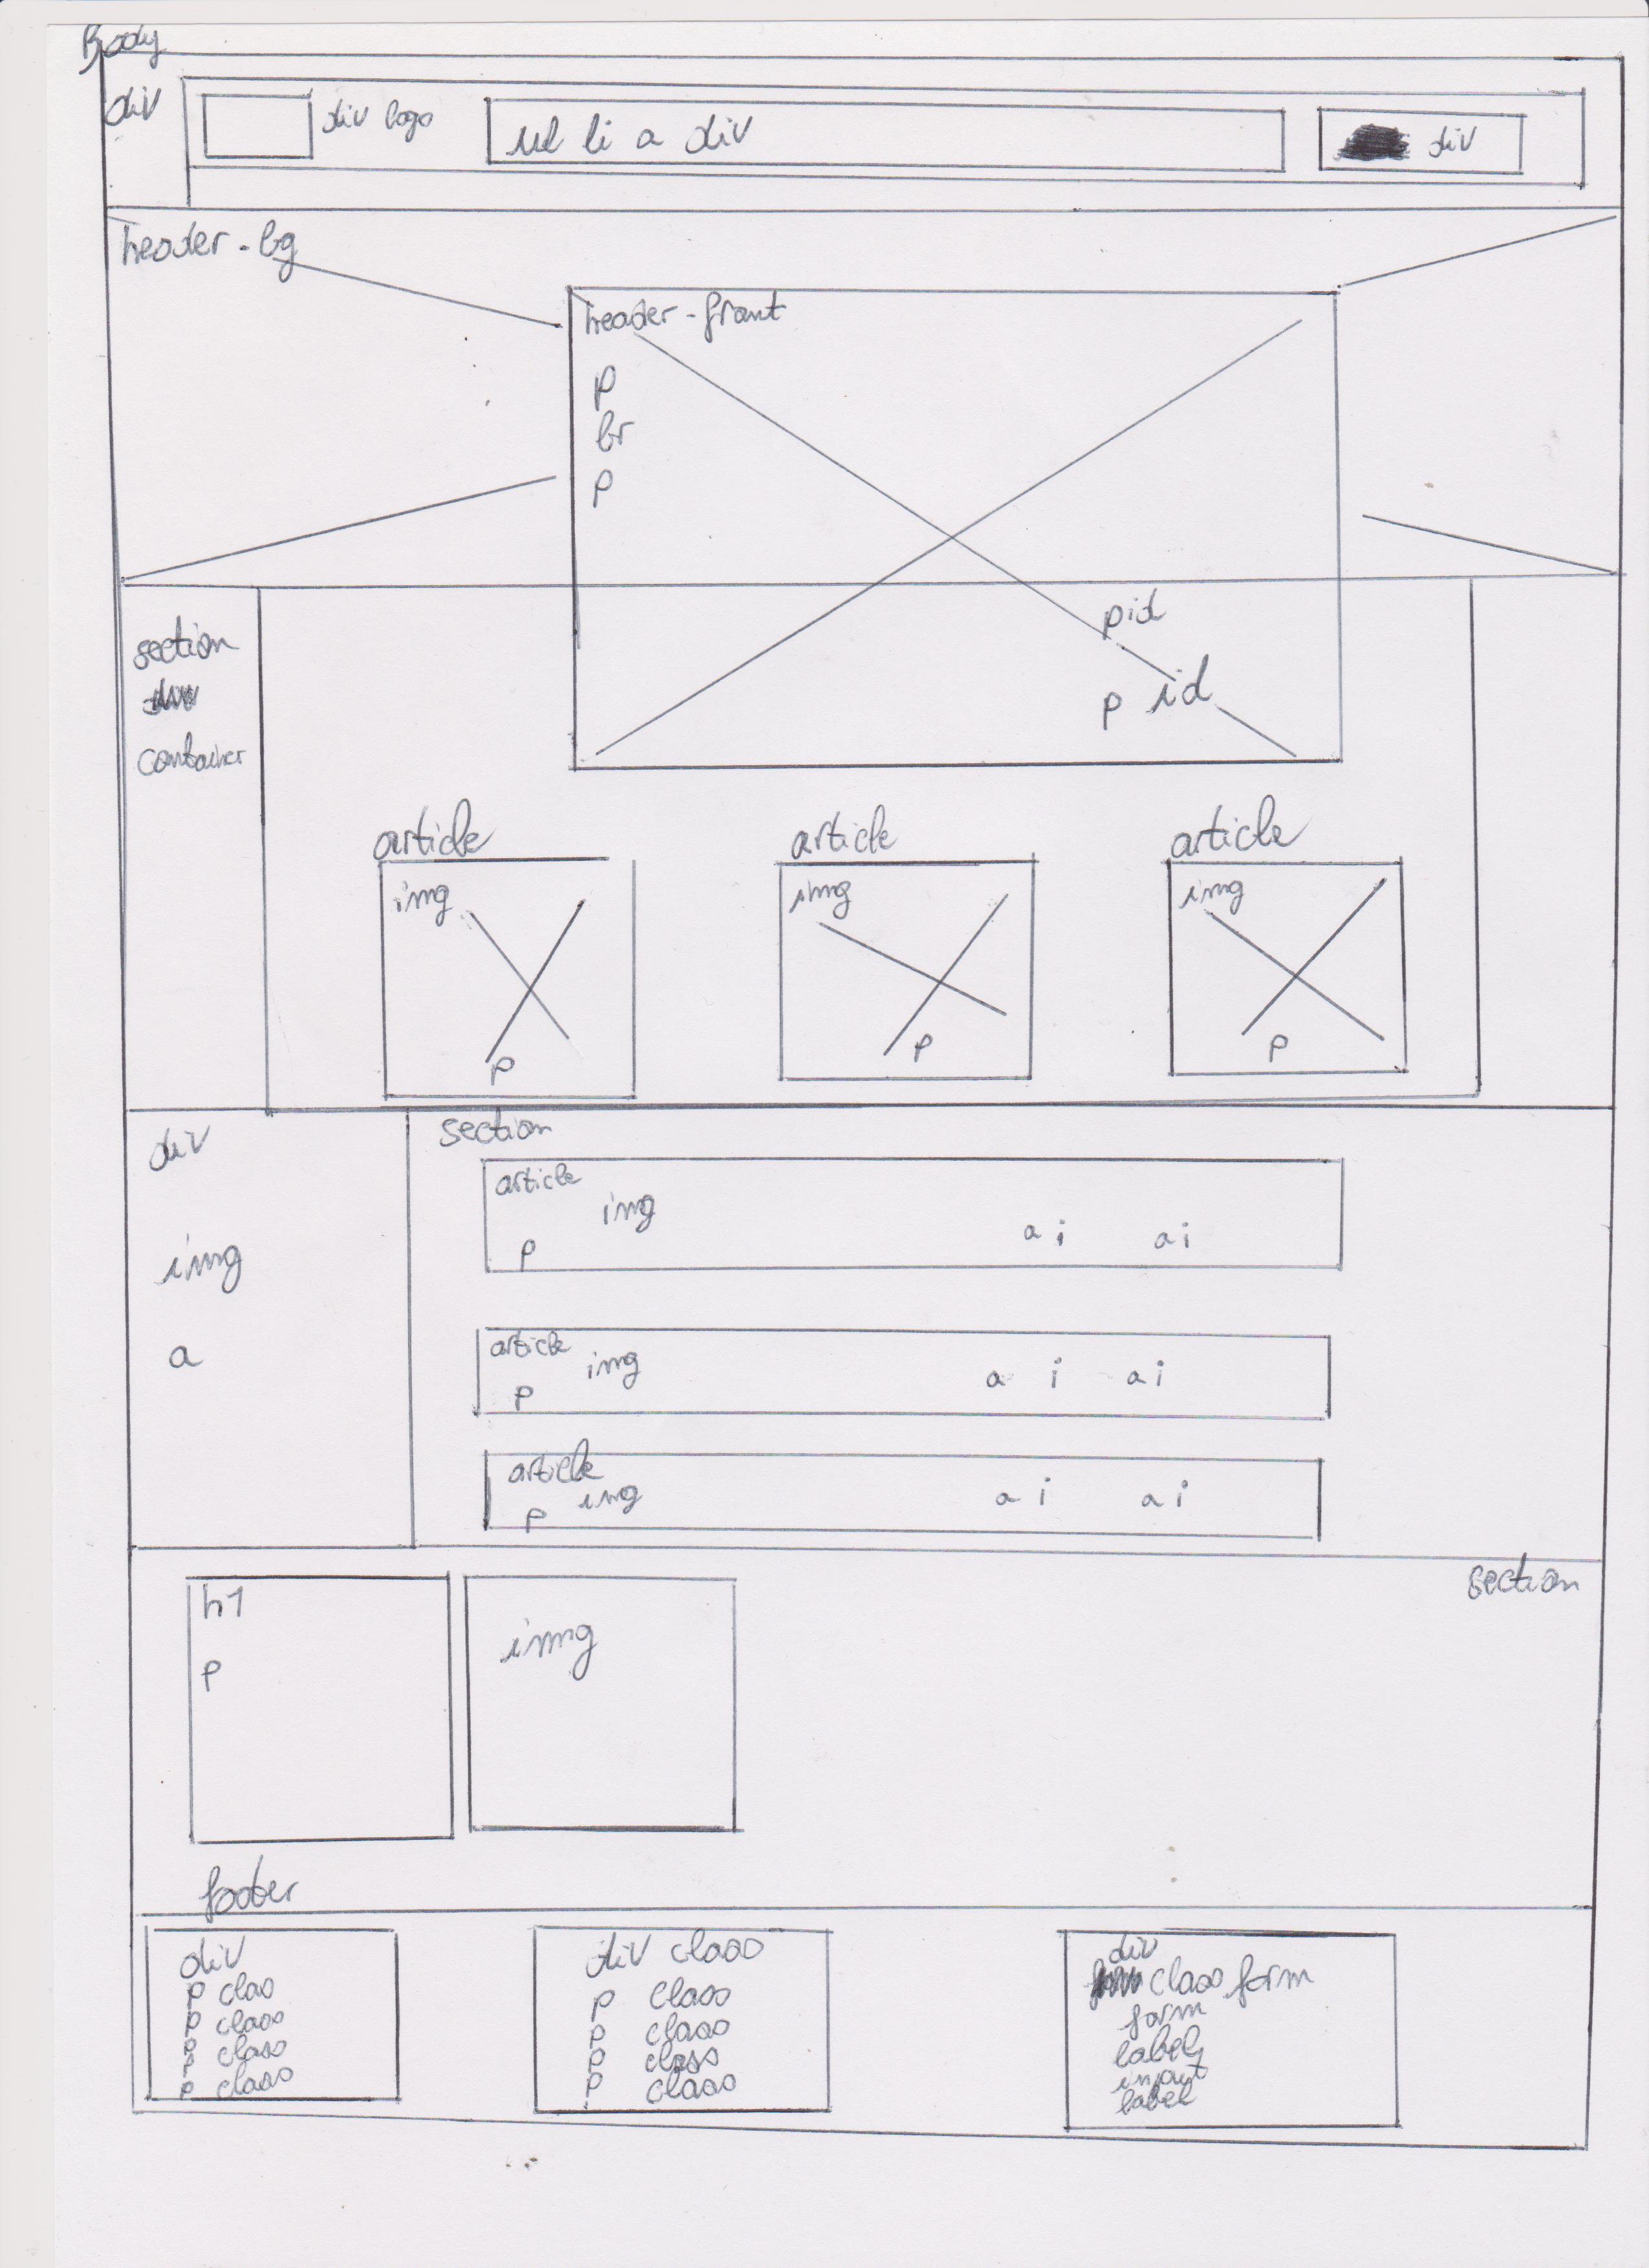 Body
div
div logo
ul li a div
div
header-bg
header-front
p
br
p
p id
p id
section
div
container
article
article
article
img
img
img
p
p
p
div
img
a
section
article
img
p
a i
a i
article
img
p
a i
a i
article
img
p
a i
a i
section
h1
p
img
footer
div
p clas
p class
p class
p class
div class
p class
p class
p class
p class
div
class form
form
label
input
label